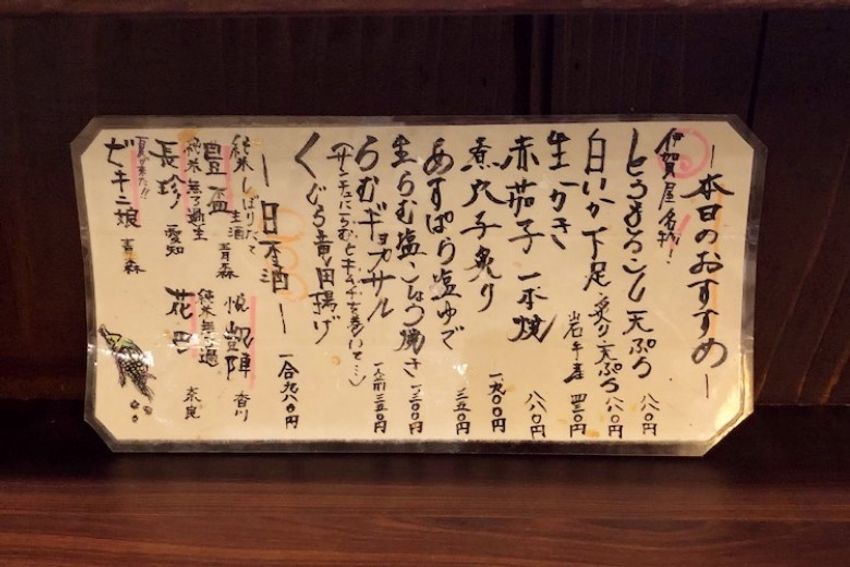 ー本日のおすすめー
伊賀屋名物!
とうもろこし天ぷら 八八〇円
白いか下足 炙り・天ぷら 八八〇円
生かき 岩手産 四三〇円
赤茄子一本焼 八八〇円
煮穴子炙り 一九〇〇円
あすぱら塩ゆで
生らむ塩こしょう焼き 一三〇〇円
らむギョプサル 一人前三五〇円
(サンチュにらむとキムチを巻いて…)
くじら竜田揚げ
ー日本酒ー 一合九八〇円
純米しぼりたて
豊盃 生酒 青森
悦凱陣 香川
純米無ろ過生
長珍 愛知
純米無ろ過
花巴 奈良
夏が来た!!
ビキニ娘 青森